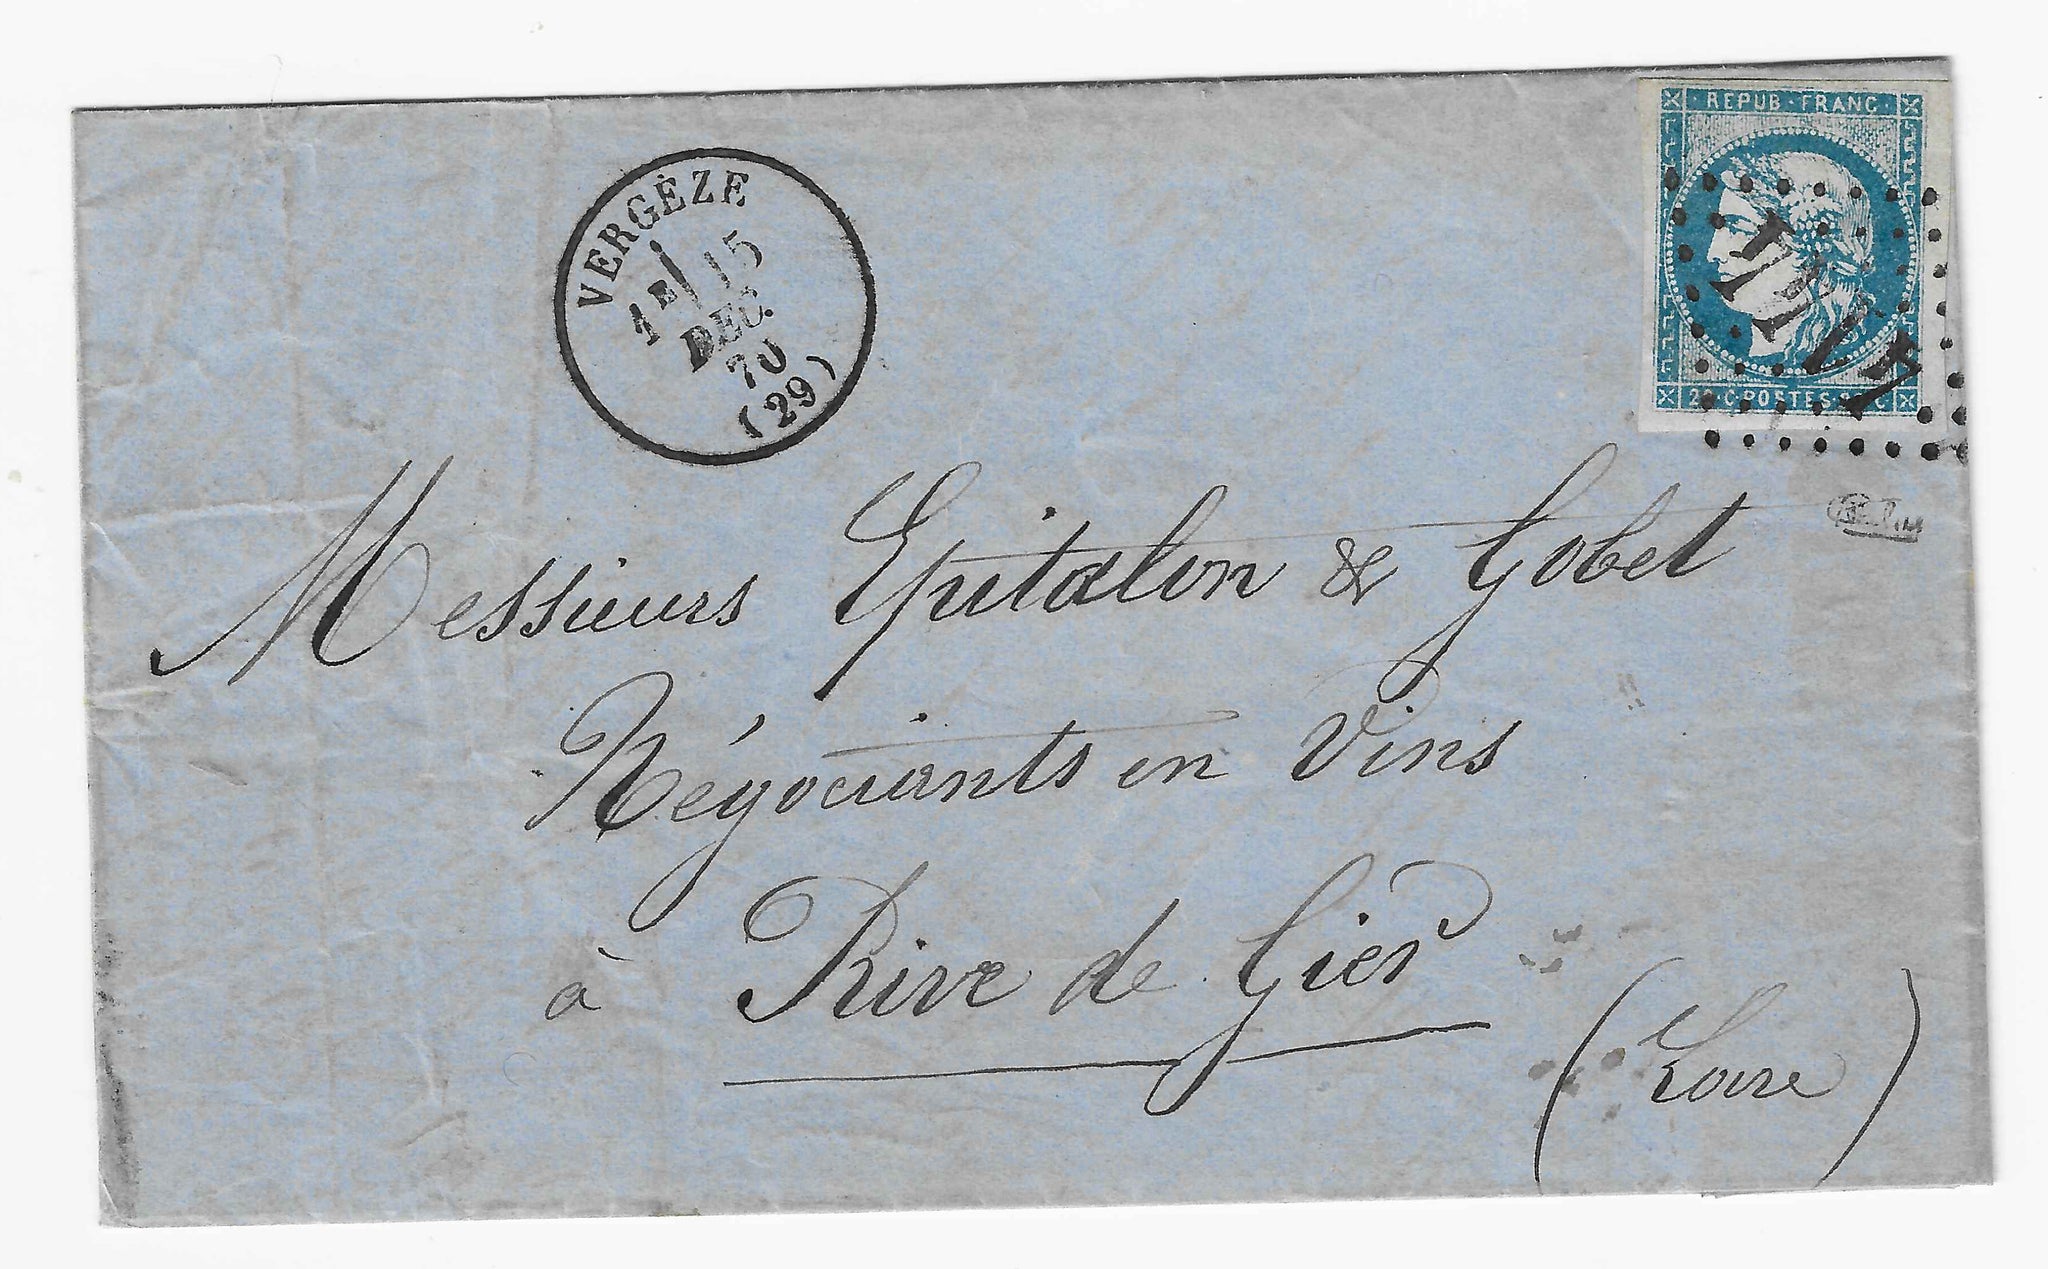 REPUB · FRANC ·
20 C POSTES 20 C
VERGÈZE
1E 15
DEC.
70
(29)
Messieurs Epitalon & Gobet
Négociants en Vins
à Rive de Gier
(Loire)